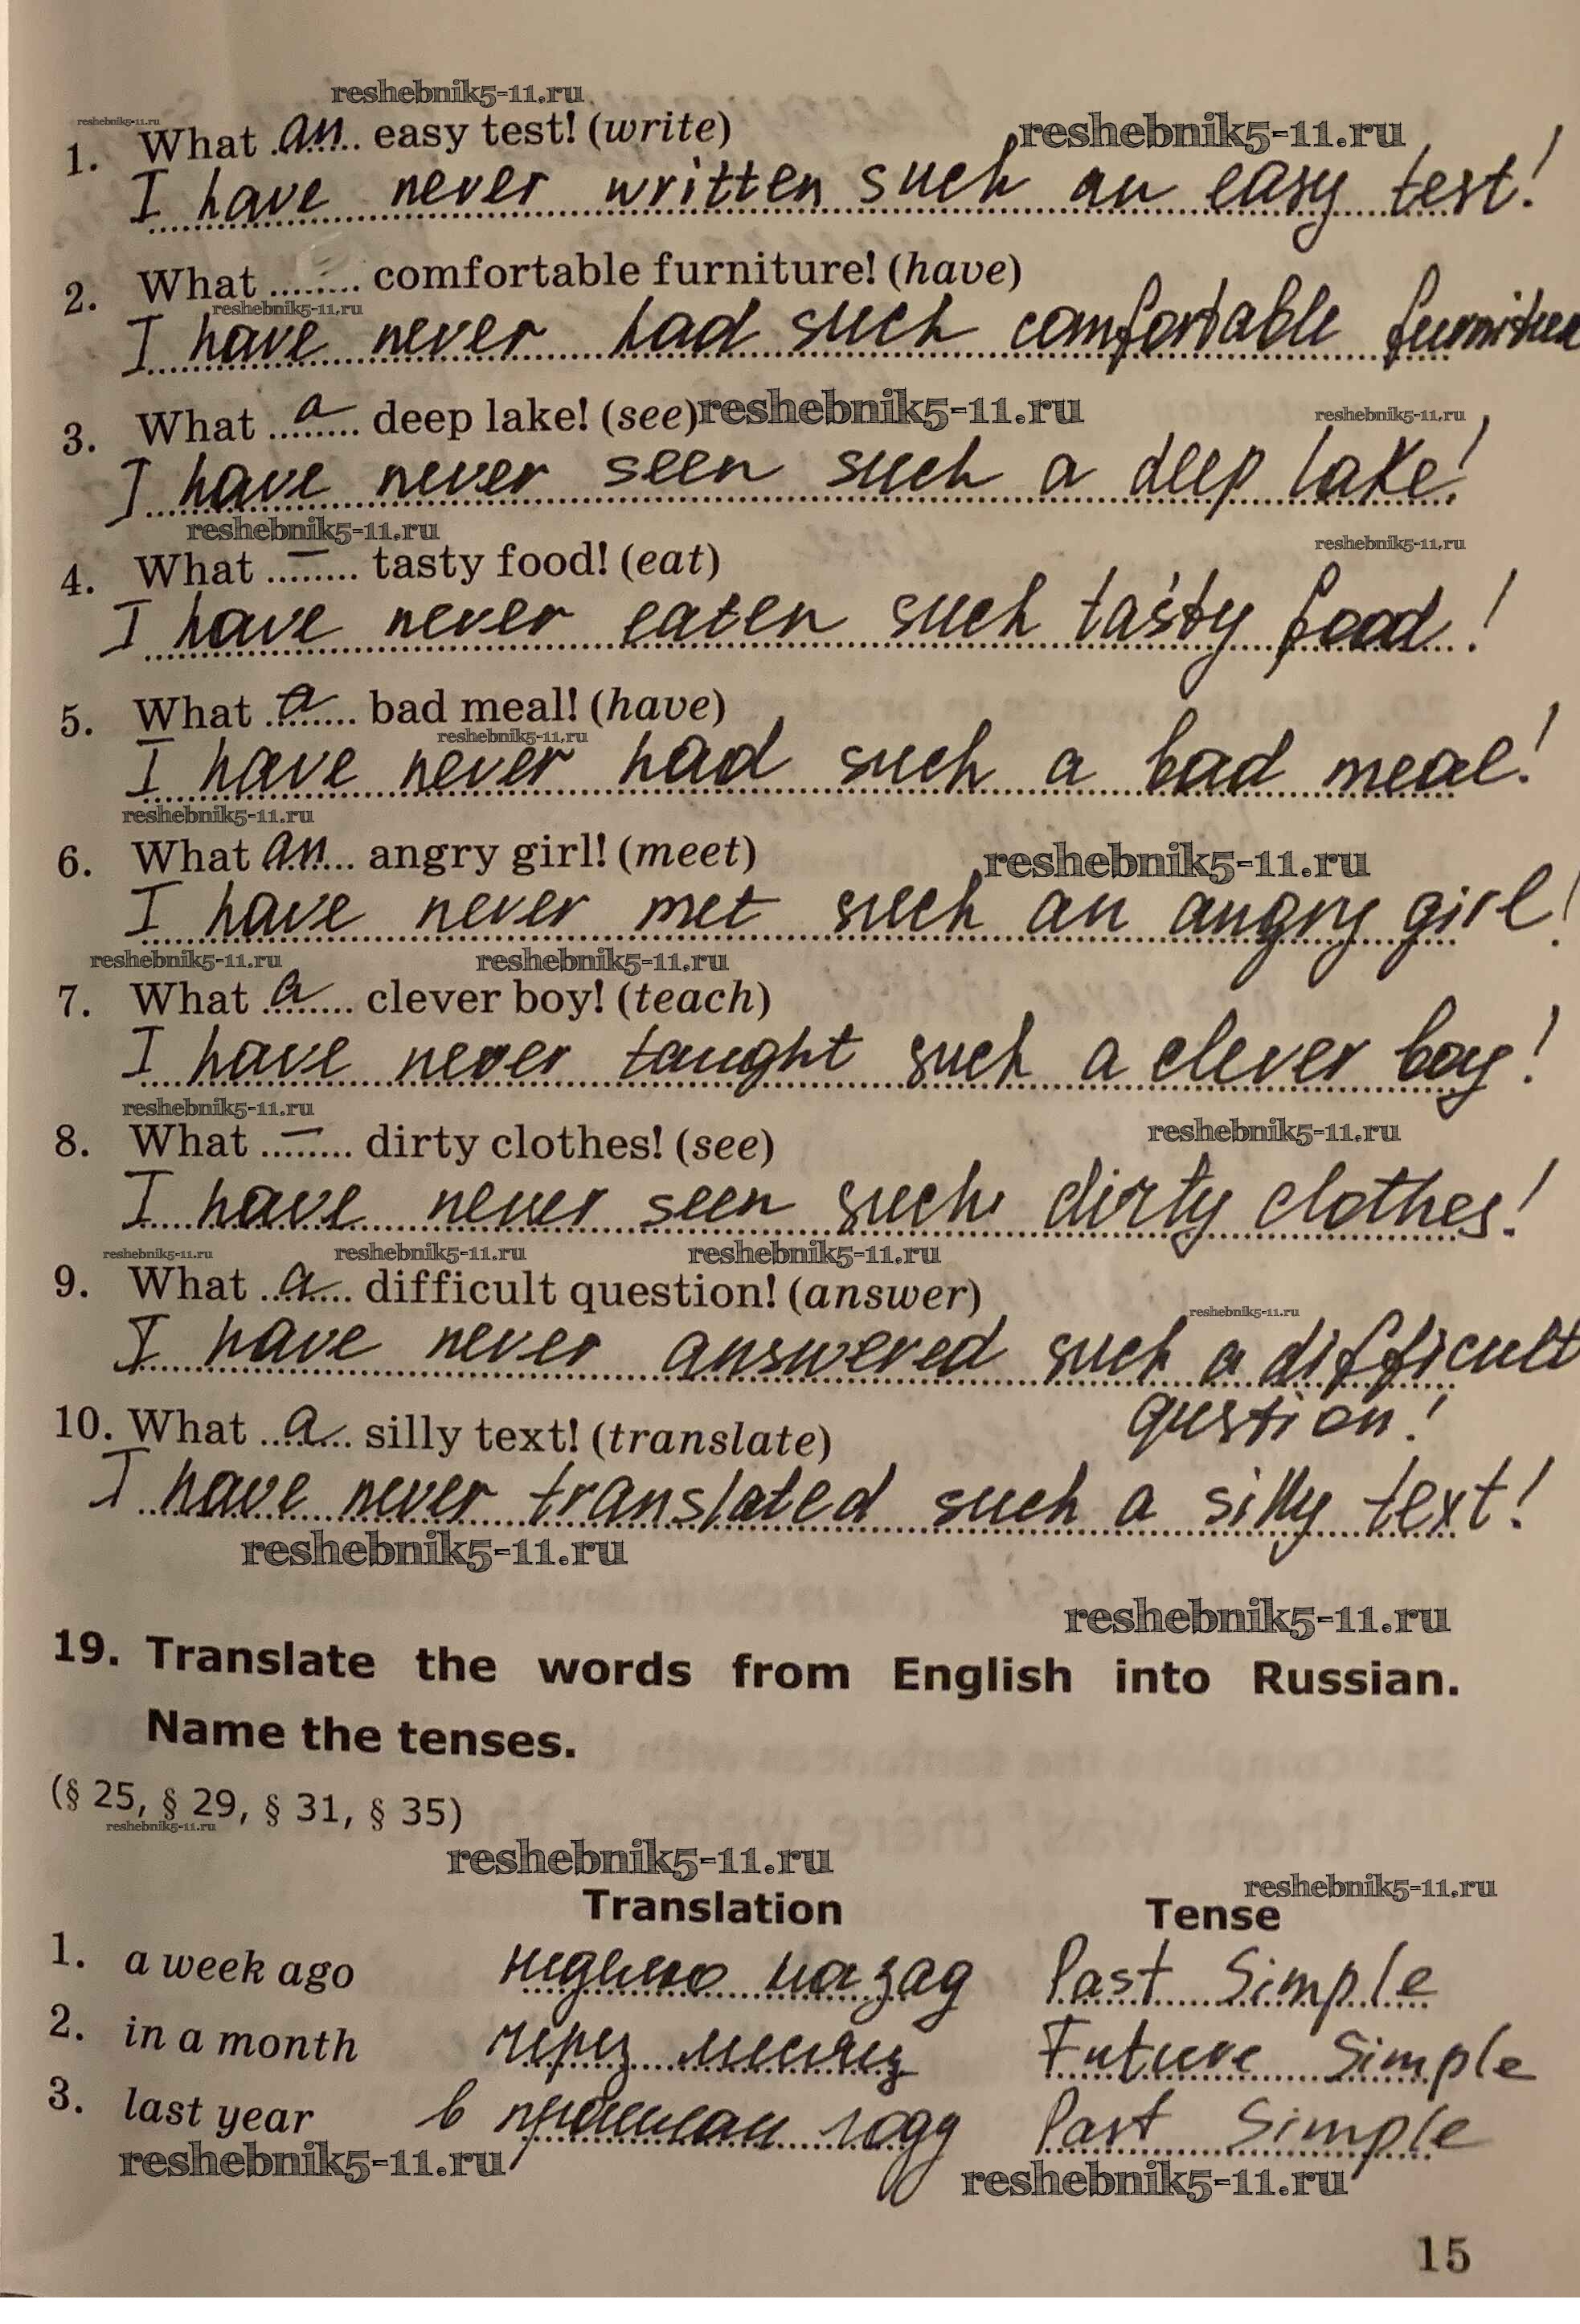 reshebnik5-11.ru
reshebnik5-11.ru
reshebnik5-11.ru
1. What an easy test! (write)
I have never written such an easy test!
2. What ........ comfortable furniture! (have)
reshebnik5-11.ru
I have never had such comfortable furniture
3. What a deep lake! (see)
reshebnik5-11.ru
reshebnik5-11.ru
I have never seen such a deep lake!
reshebnik5-11.ru
reshebnik5-11.ru
4. What – tasty food! (eat)
I have never eaten such tasty food!
5. What a bad meal! (have)
reshebnik5-11.ru
I have never had such a bad meal!
reshebnik5-11.ru
6. What an angry girl! (meet)
reshebnik5-11.ru
I have never met such an angry girl!
reshebnik5-11.ru
reshebnik5-11.ru
7. What a clever boy! (teach)
I have never taught such a clever boy!
reshebnik5-11.ru
reshebnik5-11.ru
8. What – dirty clothes! (see)
I have never seen such dirty clothes!
reshebnik5-11.ru
reshebnik5-11.ru
reshebnik5-11.ru
9. What a difficult question! (answer)
reshebnik5-11.ru
I have never answered such a difficult
question!
10. What a silly text! (translate)
I have never translated such a silly text!
reshebnik5-11.ru
reshebnik5-11.ru
19. Translate the words from English into Russian.
Name the tenses.
(§ 25, § 29, § 31, § 35)
reshebnik5-11.ru
reshebnik5-11.ru
reshebnik5-11.ru
Translation Tense
1. a week ago неделю назад Past Simple
2. in a month через месяц Future Simple
3. last year в прошлом году Past Simple
reshebnik5-11.ru
reshebnik5-11.ru
15